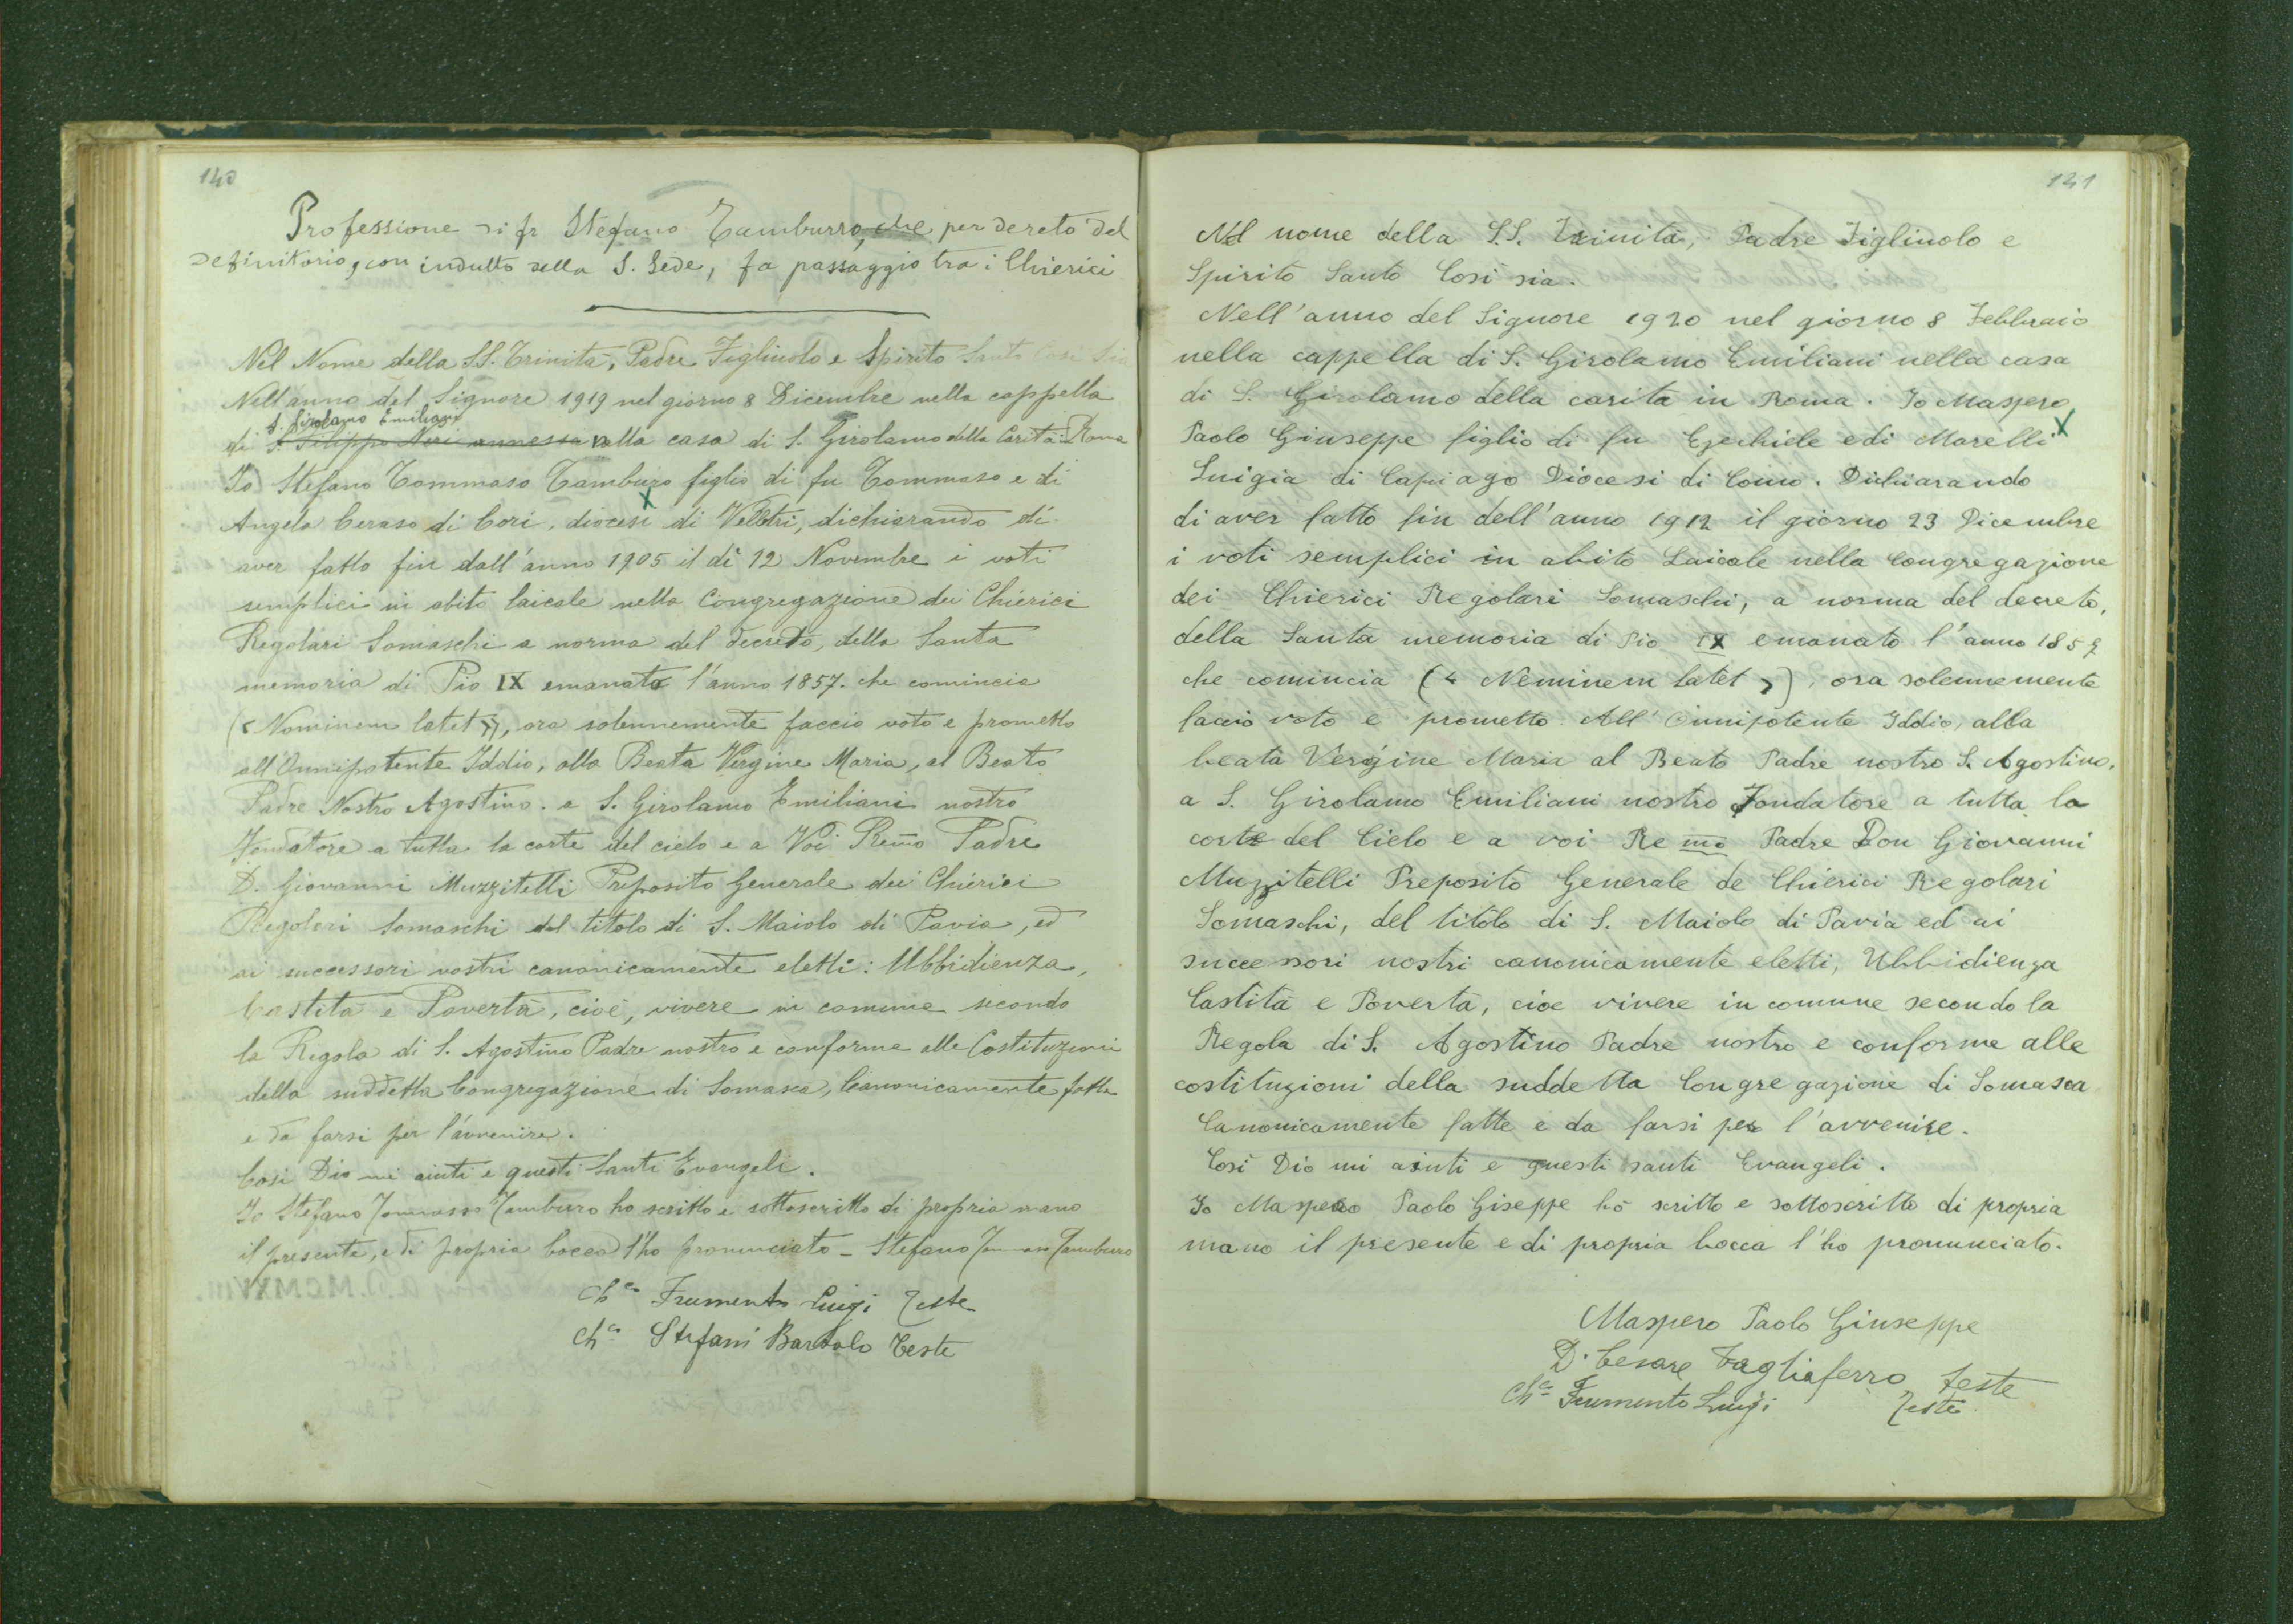 140
Professione di fr Stefano Tamburro, che per dereto del
Definitorio, con indulto della S. Sede, fa passaggio tra i Chierici
Nel Nome della SS. Trinità, Padre Figliuolo e Spirito Santo Così Sia
Nell'anno del Signore 1919 nel giorno 8 Dicembre nella cappella
S. Girolamo Emiliani
di S. Filippo Neri annessa nella casa di S. Girolamo della Carità: Roma
Io Stefano Tommaso Tamburo figlio di fu Tommaso e di
Angela Ceraso di Cori, diocesi di Velletri, dichiarando di
aver fatto fin dall'anno 1905 il dì 12 Novembre i voti
semplici in abito laicale nella Congregazione dei Chierici
Regolari Somaschi a norma del decreto, della Santa
memoria di Pio IX emanato l'anno 1857. che comincia
(«Nominem latet»), ora solennemente faccio voto e prometto
all'Onnipotente Iddio, alla Beata Vergine Maria, al Beato
Padre Nostro Agostino. a S. Girolamo Emiliani nostro
Fondatore a tutta la corte del cielo e a Voi Remo Padre
D. Giovanni Muzzitelli Preposito Generale dei Chierici
Regolari Somaschi del titolo di S. Maiolo di Pavia, ed
ai successori vostri canonicamente eletti: Ubbidienza,
Castità e Povertà, cioè, vivere in comune secondo
la Regola di S. Agostino Padre nostro e conforme alle Costituzioni
della suddetta Congregazione di Somasca, Canonicamente fatte
e da farsi per l'avvenire.
Così Dio mi aiuti e questi Santi Evangeli.
Io Stefano Tommaso Tamburro ho scritto e sottoscritto di propria mano
il presente, e di propria bocca l'ho pronunciato - Stefano Tommaso Tamburro
Ch.co Frumento Luigi Teste
Ch.co Stefani Bartolo Teste
141
Nel nome della S.S. Trinità, Padre Figliuolo e
Spirito Santo Così sia.
Nell'anno del Signore 1920 nel giorno 8 Febbraio
nella cappella di S. Girolamo Emiliani nella casa
di S. Girolamo della carità in Roma. Io Maspero
Paolo Giuseppe figlio di fu Ezechiele e di Marelli
Luigia di Capiago Diocesi di Como. Dichiarando
di aver fatto fin dell'anno 1912 il giorno 23 Dicembre
i voti semplici in abito Laicale nella Congregazione
dei Chierici Regolari Somaschi, a norma del decreto,
della Santa memoria di Pio IX emanato l'anno 1857
che comincia (« Neminem latet »), ora solennemente
faccio voto e prometto All'Onnipotente Iddio, alla
beata Vergine Maria al Beato Padre nostro S. Agostino,
a S. Girolamo Emiliani nostro Fondatore a tutta la
corte del Cielo e a voi Remo Padre Don Giovanni
Muzzitelli Preposito Generale de Chierici Regolari
Somaschi, del titolo di S. Maiolo di Pavia ed ai
successori nostri canonicamente eletti, Ubbidienza
Castità e Povertà, cioe vivere in comune secondo la
Regola di S. Agostino Padre nostro e conforme alle
costituzioni della suddetta Congregazione di Somasca
Canonicamente fatte e da farsi per l'avvenire.
Così Dio mi aiuti e questi santi Evangeli.
Io Maspero Paolo Giseppe hò scritto e sottoscritto di propria
mano il presente e di propria bocca l'ho pronunciato.
Maspero Paolo Giuseppe
D. Cesare Tagliaferro, teste
Ch.co Frumento Luigi Teste